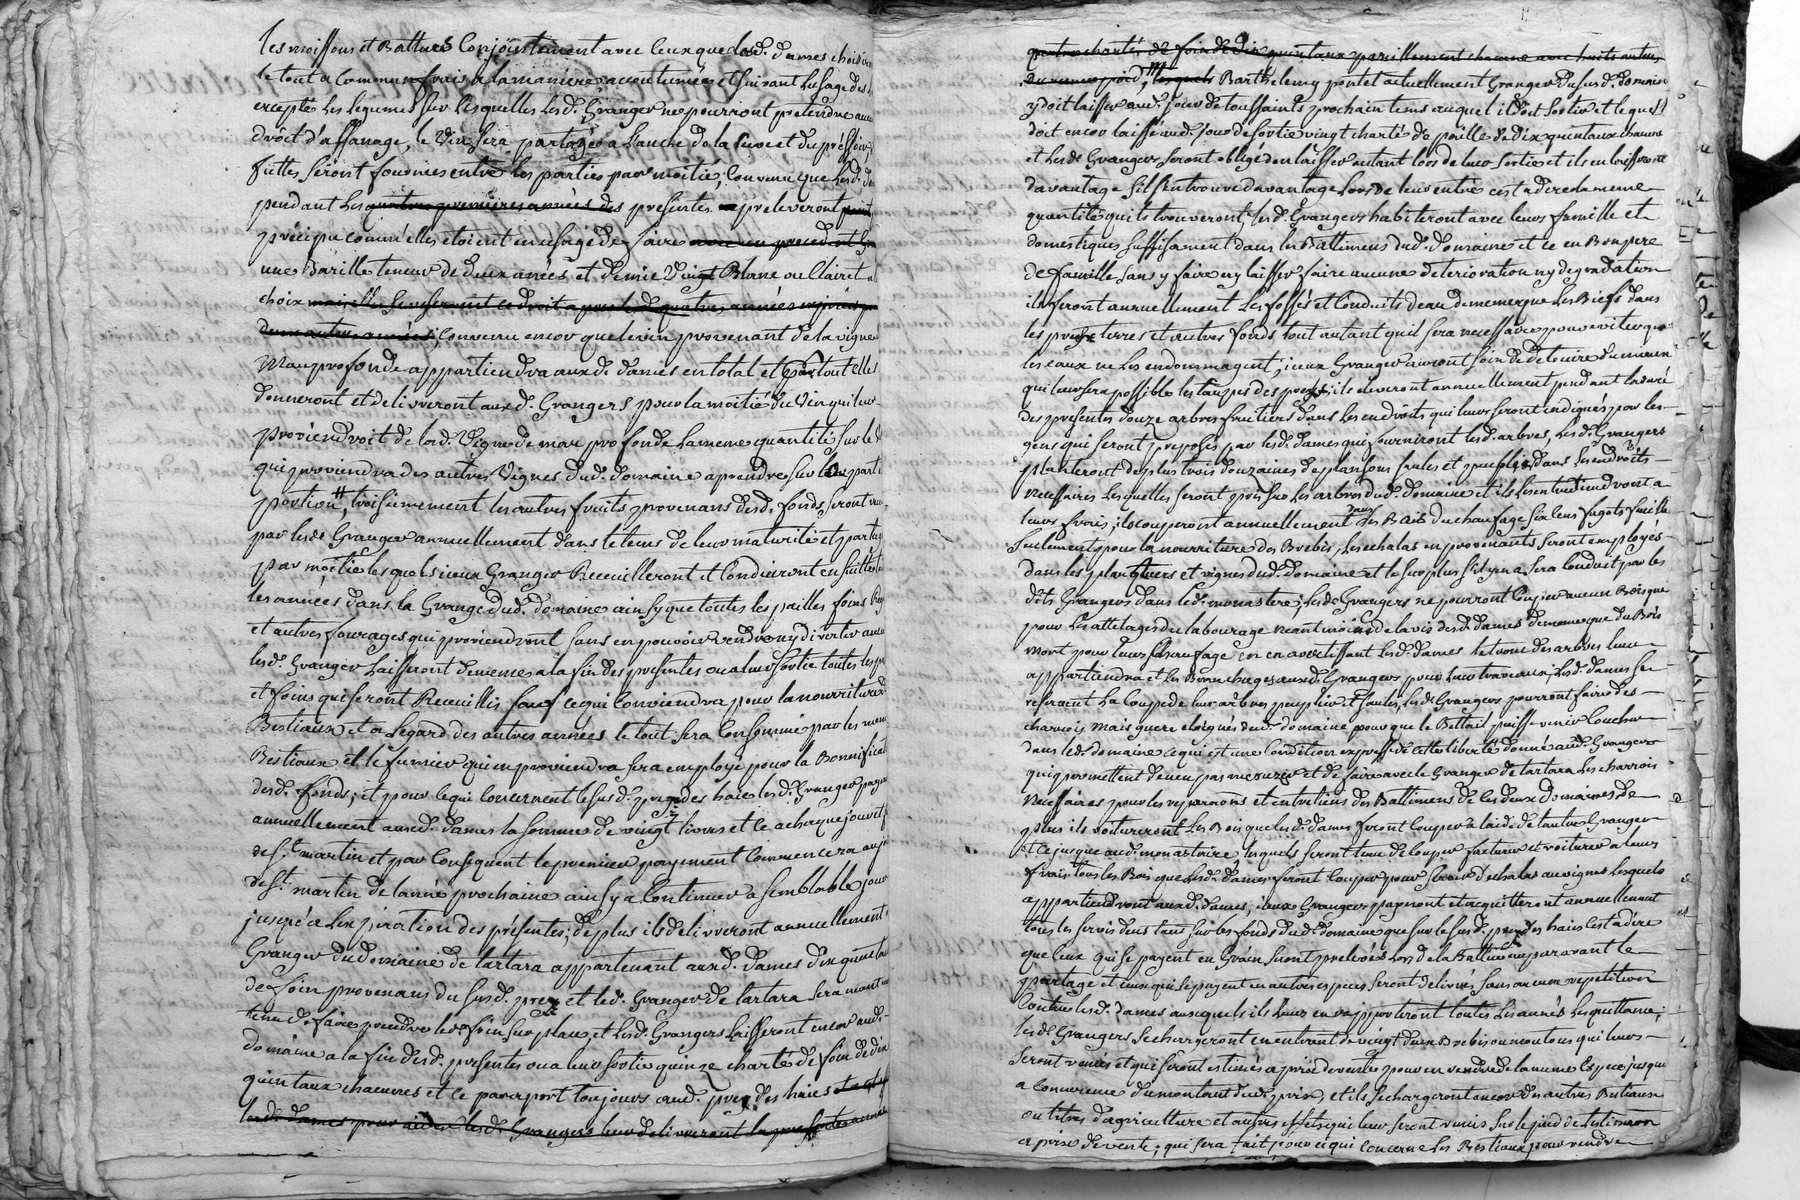 les moissons et Battures Conjointement avec ceux que lesd. dames choisi
le tout a Commun frais a la maniere accoutumée et suivant L'usage des
excepté les legumes sur lesquelles lesd. Granger ne pourront pretendre aucun
droit d'affanage, le vin sera partagé a Lanche de la Cuve et du pressoir,
futtes seront fournies entre les parties par moitié; Convenu que lesd. da
pendant les quatres premieres années des presentes preleveront
precipu comme elles etoient en usage de faire avec un precedent Gra
une Barille teneur de deux anées et demie Vingt Blanc ou Clairet a
choix mais elles Cesseront ce droit a pres les quatres années
convenu encor que le vin provenant de la vigne
Mauprofonde appartiendra auxd. dames en total et que tout elles
donneront et delivreront auxd. Grangers pour la moitié du Vin qui leur
proviendroit de lad. Vigne de mau profonde la meme quantité sur le v
qui proviendra des autres Vignes dud. domaine a prendre sur leur part
portion, troisiemement les autres fruits provenans desd. fonds seront
par lesd. Granger annuellement dans le tems de leur maturité et partag
par moitié lesquels iceux Granger Receuilleront et Conduiront en suitte
les années dans la Grange dud. domaine ainsy que toutes les pailles foins
et autres fourages qui proviendront sans en pouvoir vendre ny divertir
lesd. Granger Laisseront de memes a la fin des presentes ou a leur sortie toutes les p
et foins qui seront Recueillis sauf ce qui Conviendra pour la nourriture
Bestiaux et a L'egard des autres années le tout sera Consommé par les mem
Bestiaux et le fumier qui en proviendra sera employé pour la Bonnificat
desd. fonds; et pour ce qui Concernent le susd. prez des haies lesd. Granger paye
annuellement auxd. dames la sommes de vingt livres et ce a chaque jour et f
de St. martin et par Consequent le premier payement Commencera au jo
de St. martin de l'anné prochaine ainsy a Continuer a semblable jour
jusqu'a L'expiration des presentes; de plus ils delivreront annuellement
Granger du domaine de tartara appartenant auxd. dames dix quinta
de foin provenans du susd. prez et led. Granger de tartara sera
tenu de faire prendre led. foin sur place et lesd. Grangers Laisseront encor aud.
domaine a la fin desd. presentes ou a leur sortie quinze charté de foin de dix
quintaux chacunes et ce par raport toujours aud. prez des haies
lesd. dames pour aider lesd. Grangers leur delivreront la presente année
quatres chartés de foin de dix quintaux pareillement chacune
Barthelemy pontet actuellement Granger du susd. domaine
y doit laisser aud. jour de toussaints prochain tems auquel il doit sortir et lequel
doit encor laissé aud. jour de sortie vingt charté de paille de dix quintaux chacune
et lesd. Grangers seront obligé d'en laisser autant lors de leur sortie et ils en laisseront
davantage s'il s'en trouve davantage lors de leur entrée c'est a dire la meme
quantité qu'ils trouveront lesd. Grangers habiteront avec leurs famille et
domestiques suffisament dans les Battimens dud. domaine et ce en Bon pere
de famille sans y faire ny laisser faire aucune deterioration ny degradation
ils feront annuellement les fossés et Conduits d'eau de meme que les Biefs dans
les prés terres et autres fonds tout autant qu'il sera necessaire pour eviter que
les eaux ne les endommagent; iceux Granger auront soin de detruire du mieux
qui leur sera possible les taupes des prez; ils eleveront annuellement pendant la duré
des presentes douze arbres fruitiers dans les endroits qui leur seront indiqués par les
gens qui seront preposés par lesd. dames qui fourniront lesd. arbres, lesd. Grangers
planteront de plus trois douzaines de plansons saules et peupliers dans les endroits
necessaires lesquelles seront pris sur les arbres dud. domaine et ils les entretiendront a
leurs frais; ils couperont annuellement dans les Bois du chaufage six cens fagots feuille
seulement pour la nourriture des Brebis, les echalas en provenants seront employés
dans les plantiers et vignes dud. domaine et le surplus s'il y en a sera Conduit par les
dits Grangers dans led. monastere; lesd. Grangers ne pourront Couper aucun Bois que
pour les attelages du labourage neantmoins de l'avis desd. dames de meme que du Bois
mort pour leurs chaufage en en avertissant lesd. dames le tronc des arbres leur
appartiendra et les Branchages auxd. Grangers pour leur travaux; Lesd. dames se
reservent la Coupe de leur arbres peuplier et saules, lesd. Grangers pourront faire des
charrois mais guere eloignés dud. domaine pour que le Bettail puisse venir Coucher
dans led. domaine ce qui est une Condition expresse de cette liberté donné auxd. Grangers
qui promettent de n'en pas mesuzer et de faire avec le Granger de tartara les charrois
necessaires pour les reparaons et entretiens des Battimens de ces deux domaines de
plus ils voitureront les Bois que lesd. dames feront Couper a l'aide de l'autre Granger
et ce jusque aud. monastoire, lesquels seront tenu de Couper facturer et voiturer a leurs
frais tous les Bois que lesd. dames feront Couper pour servir d'echalas aux vignes lesquels
appartiendront auxd. dames, iceux Grangers payeront et acquitteront annuellement
tous les servis deus tant sur les fonds dud. domaine que sur le susd. prez des haies c'est a dire
que ceux qui se payent en Grain seront prelevés Lors de la Batture auparavant le
partage et ceux qui se payent en autres especes seront delivrés sans aucune repetition
Contre lesd. dames auxquels ils leurs en rapporteront toutes les années les quittances;
lesd. Grangers se chargeront en entrant de vingt deux Brebis ou moutons qui leurs
seront remis et qui seront estimés a prix de vente pour en rendre de la meme Espece jusqu
a Concurence du montant dud. prix, et ils se chargeront encor des autres Bestiaux
outires d'agriculture et autres effets qui leur seront remis sur le pied de l'estimaon
a prix de vente; qui sera fait pour ce qui concerne les Bestiaux, pour rendre